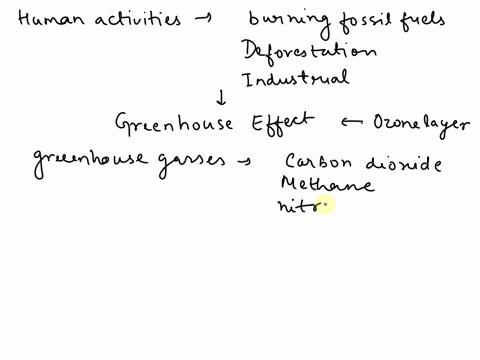 Human activities → burning fossil fuels
Deforestation
Industrial
↓
Greenhouse Effect ← Ozone layer
greenhouse gasses → Carbon dioxide
Methane
nitr